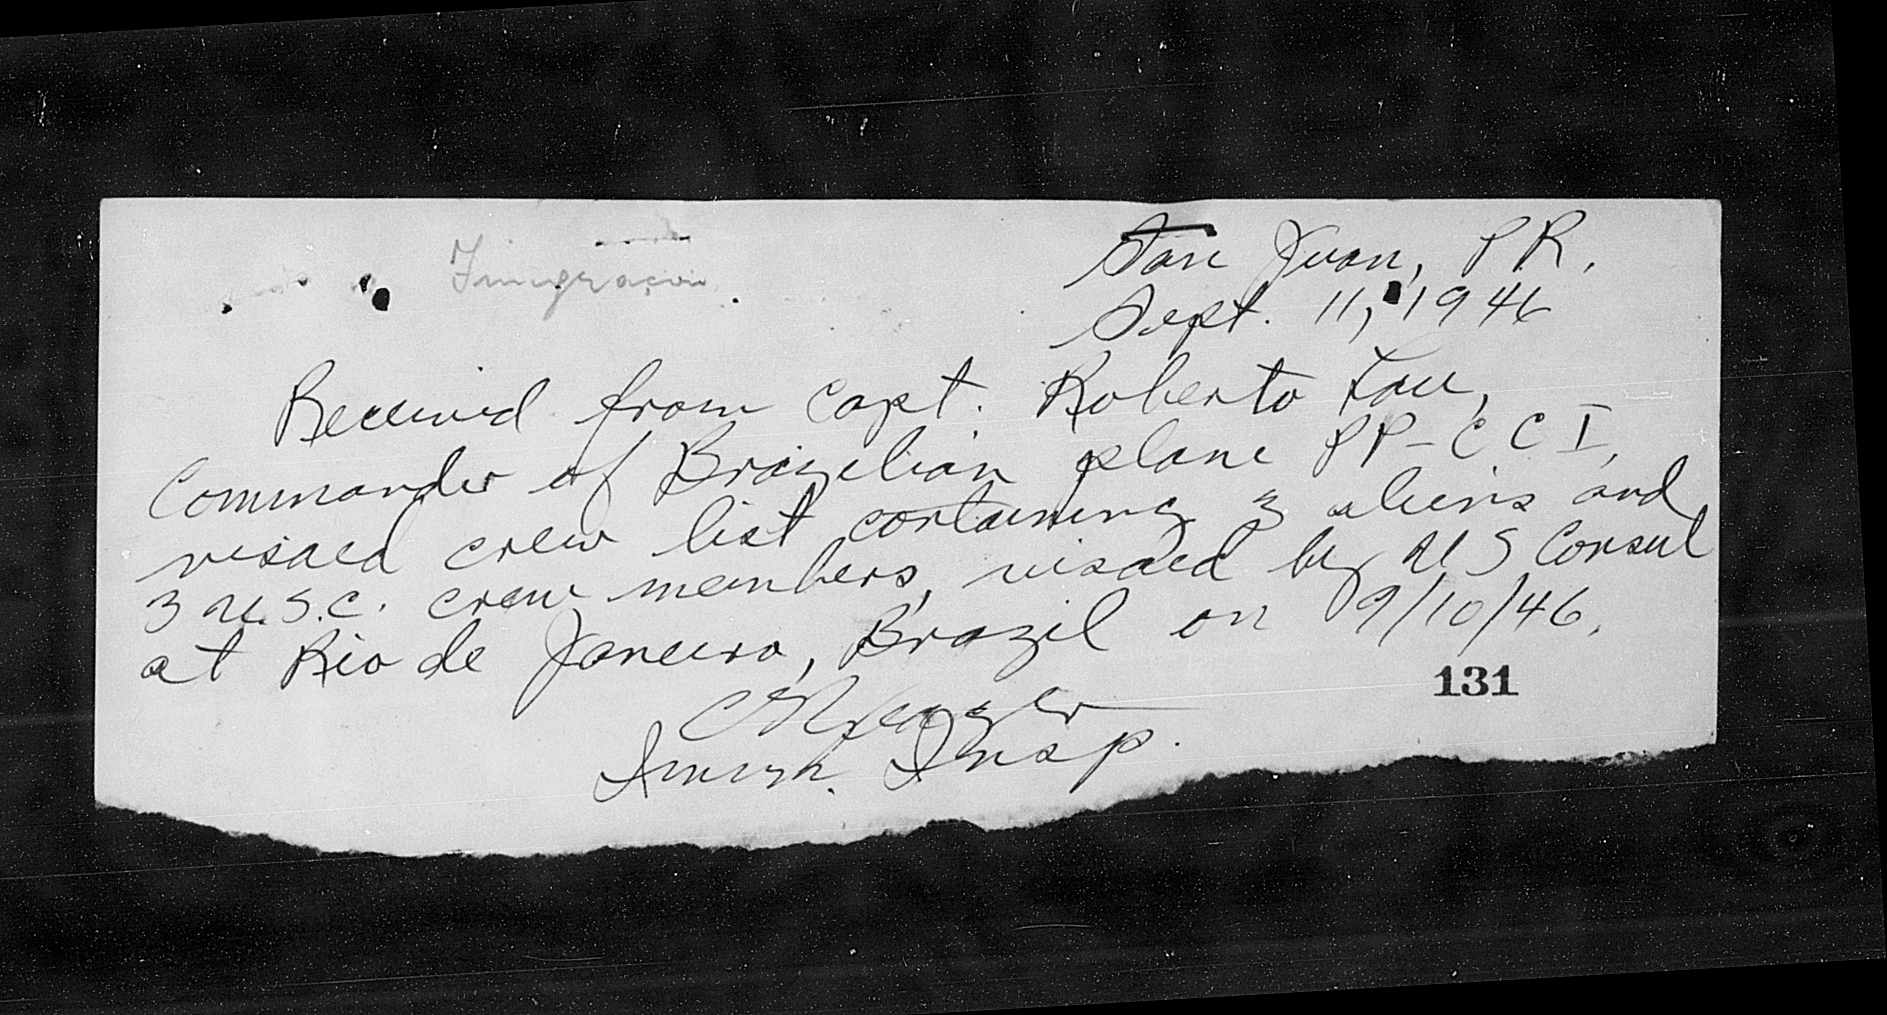 Imigração
San Juan, P R.
Sept. 11, 1946
Received from Capt. Roberto
Commander of Brazilian plane PP-CCI,
visaed crew list containing 3 aliens and
3 U.S.C. crew members, visaed by U S Consul
at Rio de Janeiro, Brazil on 9/10/46.
131
Immgr. Insp.